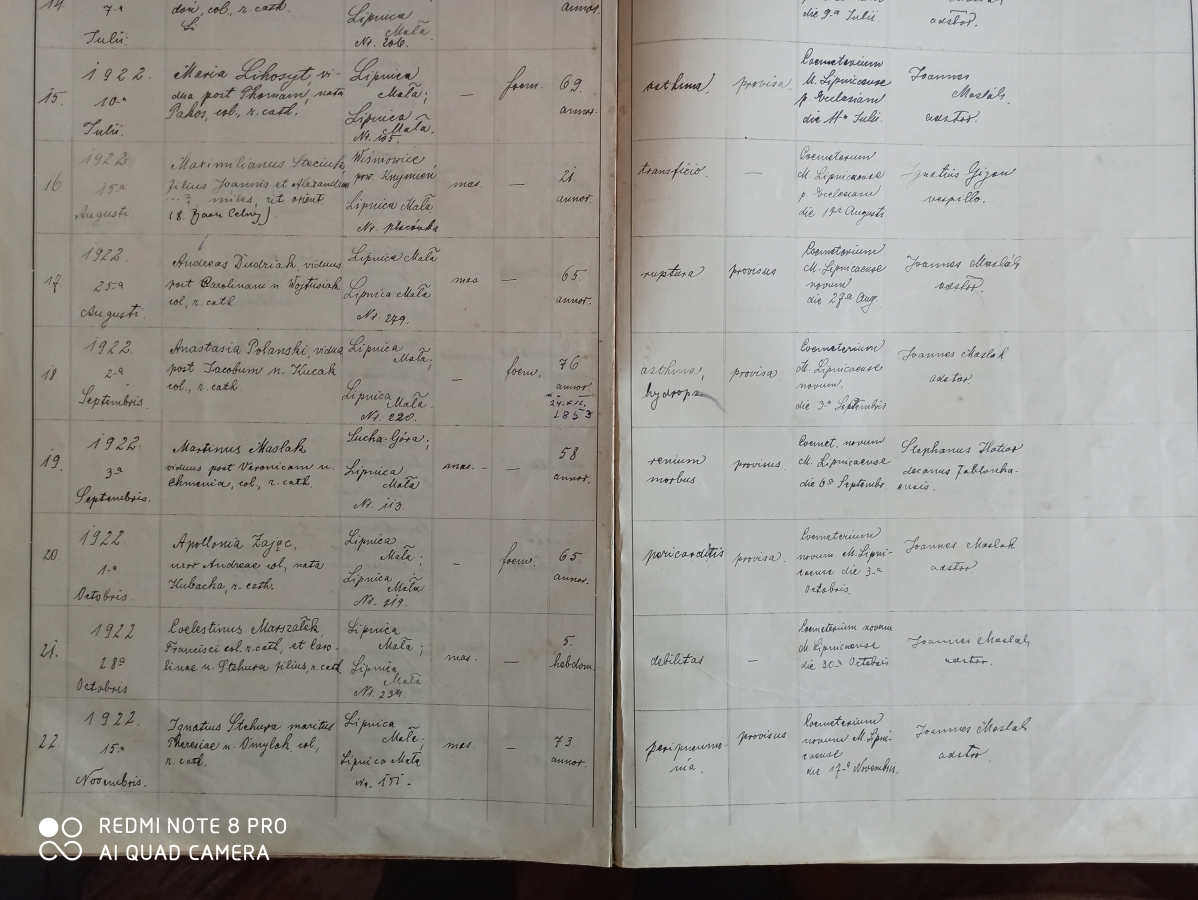 14
7.a
Julii.
col, r. cath.
Lipnica
Mała.
Nr. 206.
annor.
die 9.a Julii.
adstor.
15.
1922.
10.a
Julii.
Maria Lihosyt vi-
dua post Thomam, nata
Pakos, col., r. cath.
Lipnica
Mała;
Lipnica
Mała.
Nr. 105.
—
foem.
69
annor.
asthma
provisa.
Coemeterium
M. Lipnicense
p. Ecclesiam
die 11.a Julii.
Joannes
Maślak.
adstor.
16
1922
15.a
Augusti
Maximilianus
filius Joannis et Alexandra
miles, rit. orient
Wiśniowice,
pow.
Lipnica Mała
Nr. placówka
mas.
—
21
annor.
—
Coemeterium
M. Lipnicense
p. Ecclesiam
die 19.a Augusti
Ignatius Gigon
vespillo.
17
1922.
25.a
Augusti.
Andreas Dudziak, viduus
post Carolinam n. Wojtusiak
col, r. cath
Lipnica Mała
Lipnica Mała
Nr. 279.
mas
—
65
annor.
ruptura
provisus
Coemeterium
M. Lipnicaense
novum
die 27.a Aug.
Joannes Maślak
adstor.
18
1922.
2.a
Septembris.
Anastasia Polanski, vidua
post Jacobum n. Kucak
col., r. cath
Lipnica
Mała;
Lipnica
Mała.
Nr. 220.
—
foem.
76
annor.
1853
asthma,
hydrops
provisa
Coemeterium
M. Lipnicaense
novum.
die 3.a Septembris
Joannes Maślak
adstor.
19.
1922.
3.a
Septembris.
Martinus Maslak
viduus post Veronicam n.
col., r. cath.
Sucha-Góra;
Lipnica
Mała
Nr. 113.
mas.
—
58
annor.
renium
morbus
provisus.
Coemet. novum
M. Lipnicaense
die 6.a Septembr.
Stephanus
decanus Jablonka-
ensis.
20
1922.
1.a
Octobris.
Apollonia Zając,
uxor Andreae col, nata
Kubacka, r. cath.
Lipnica
Mała;
Lipnica
Mała
Nr. 219.
—
foem.
65
annor.
pericarditis
provisa.
Coemeterium
novum M. Lipni-
caense die 3.a
Octobris.
Joannes Maslak
adstor.
21.
1922
28.a
Octobris
Coelestinus Marszałek,
Francisci col. r. cath, et Caro-
linae n. Stehura filius, r. cath.
Lipnica
Mała;
Lipnica
Mała
Nr. 234.
mas.
—
5.
hebdom.
debilitas
—
Coemeterium novum
M. Lipnicaense
die 30.a Octobris
Joannes Maslak
adstor.
22.
1922.
15.a
Novembris.
Ignatius Stehura maritus
Theresiae n. Omylak col,
r. cath.
Lipnica
Mała;
Lipnica Mała
Nr. 151.
mas.
—
73
annor.
peripneumo-
nia.
provisus
Coemeterium
novum M. Lipni-
caense
die 17.a Novembr.
Joannes Maslak
adstor.
REDMI NOTE 8 PRO
AI QUAD CAMERA